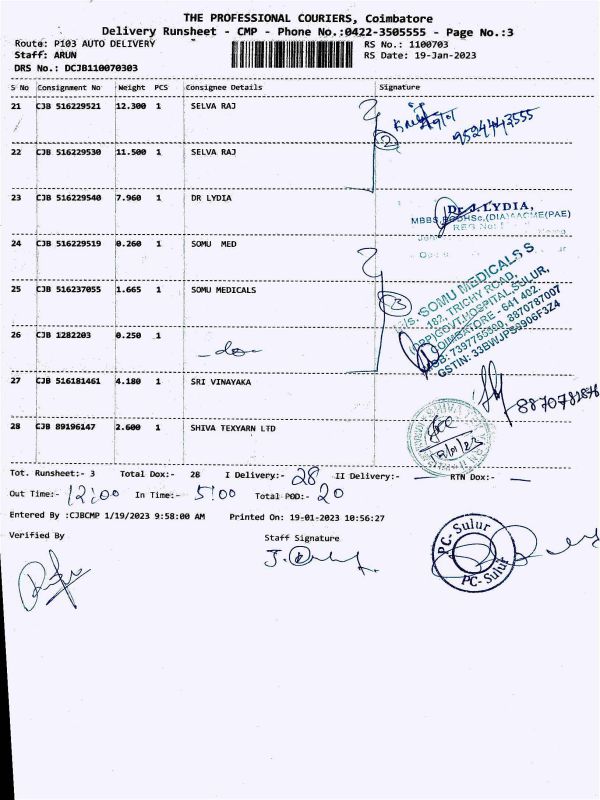 THE PROFESSIONAL COURIERS, Coimbatore
Delivery Runsheet - CMP - Phone No.:0422-3505555 - Page No.:3
Route: P103 AUTO DELIVERY RS No.: 1100703
Staff: ARUN RS Date: 19-Jan-2023
DRS No.: DCJB110070303
S No Consignment No Weight PCS Consignee Details Signature
21 CJB 516229521 12.300 1 SELVA RAJ
9524443555
2
22 CJB 516229530 11.500 1 SELVA RAJ
23 CJB 516229540 7.960 1 DR LYDIA
Dr J.LYDIA,
24 CJB 516229519 0.260 1 SOMU MED
25 CJB 516237055 1.665 1 SOMU MEDICALS
3
SOMU MEDICALS S
182, TRICHY ROAD,
COIMBATORE - 641 402.
8870787007
26 CJB 1282203 0.250 1
-do-
27 CJB 516181461 4.180 1 SRI VINAYAKA
28 CJB 89196147 2.600 1 SHIVA TEXYARN LTD
Tot. Runsheet:- 3 Total Dox:- 28 I Delivery:- 28 II Delivery:- — RTN Dox:- —
Out Time:- 12:00 In Time:- 5:00 Total POD:- 20
Entered By :CJBCMP 1/19/2023 9:58:00 AM Printed On: 19-01-2023 10:56:27
Verified By Staff Signature
PC-Sulur
PC-Sulur